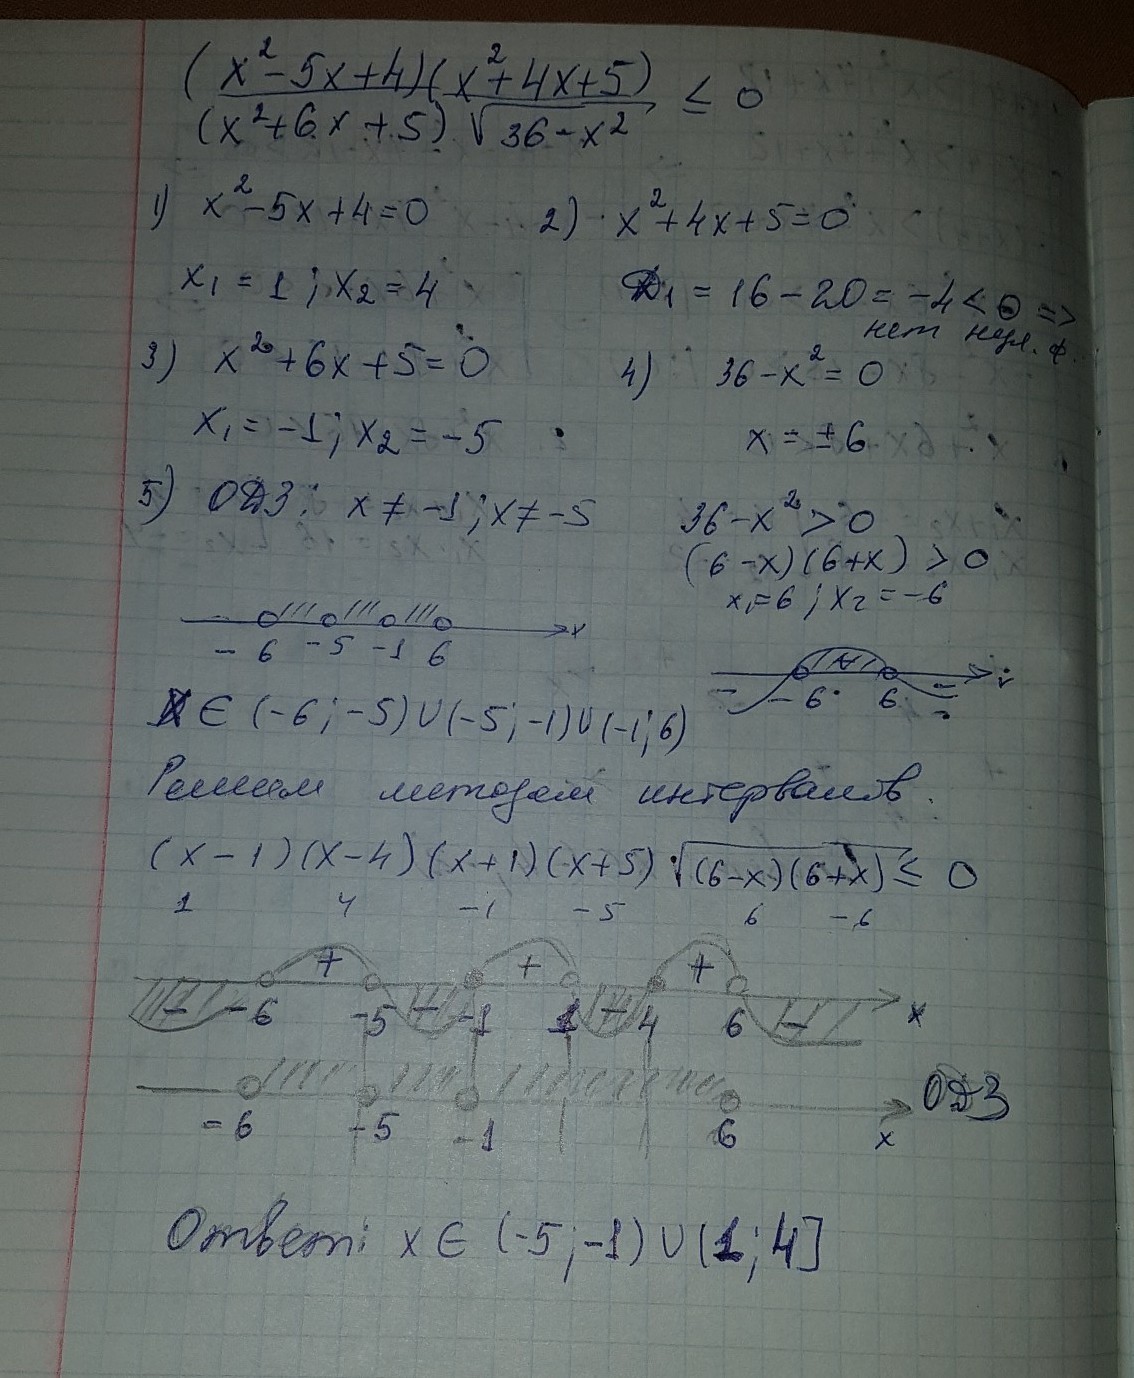 (x²-5x+4)(x²+4x+5) ≤ 0
(x²+6x+5) √36-x²
1) x²-5x+4=0 2) x²+4x+5=0
x₁=1; x₂=4 D₁=16-20=-4<0 =>
нет нул. ф.
3) x²+6x+5=0 4) 36-x²=0
x₁=-1; x₂=-5 x=±6
5) ОДЗ: x≠-1; x≠-5 36-x²>0
(6-x)(6+x)>0
x₁=6; x₂=-6
-6 -5 -1 6 x
- -6 + 6 -
x∈(-6;-5)∪(-5;-1)∪(-1;6)
Решим методом интервалов.
(x-1)(x-4)(x+1)(x+5)√(6-x)(6+x) ≤ 0
1 4 -1 -5 6 -6
+ + +
- -6 -5 - -1 1 - 4 6 - x
-6 -5 -1 6 x ОДЗ
Ответ: x∈(-5;-1)∪(1;4]